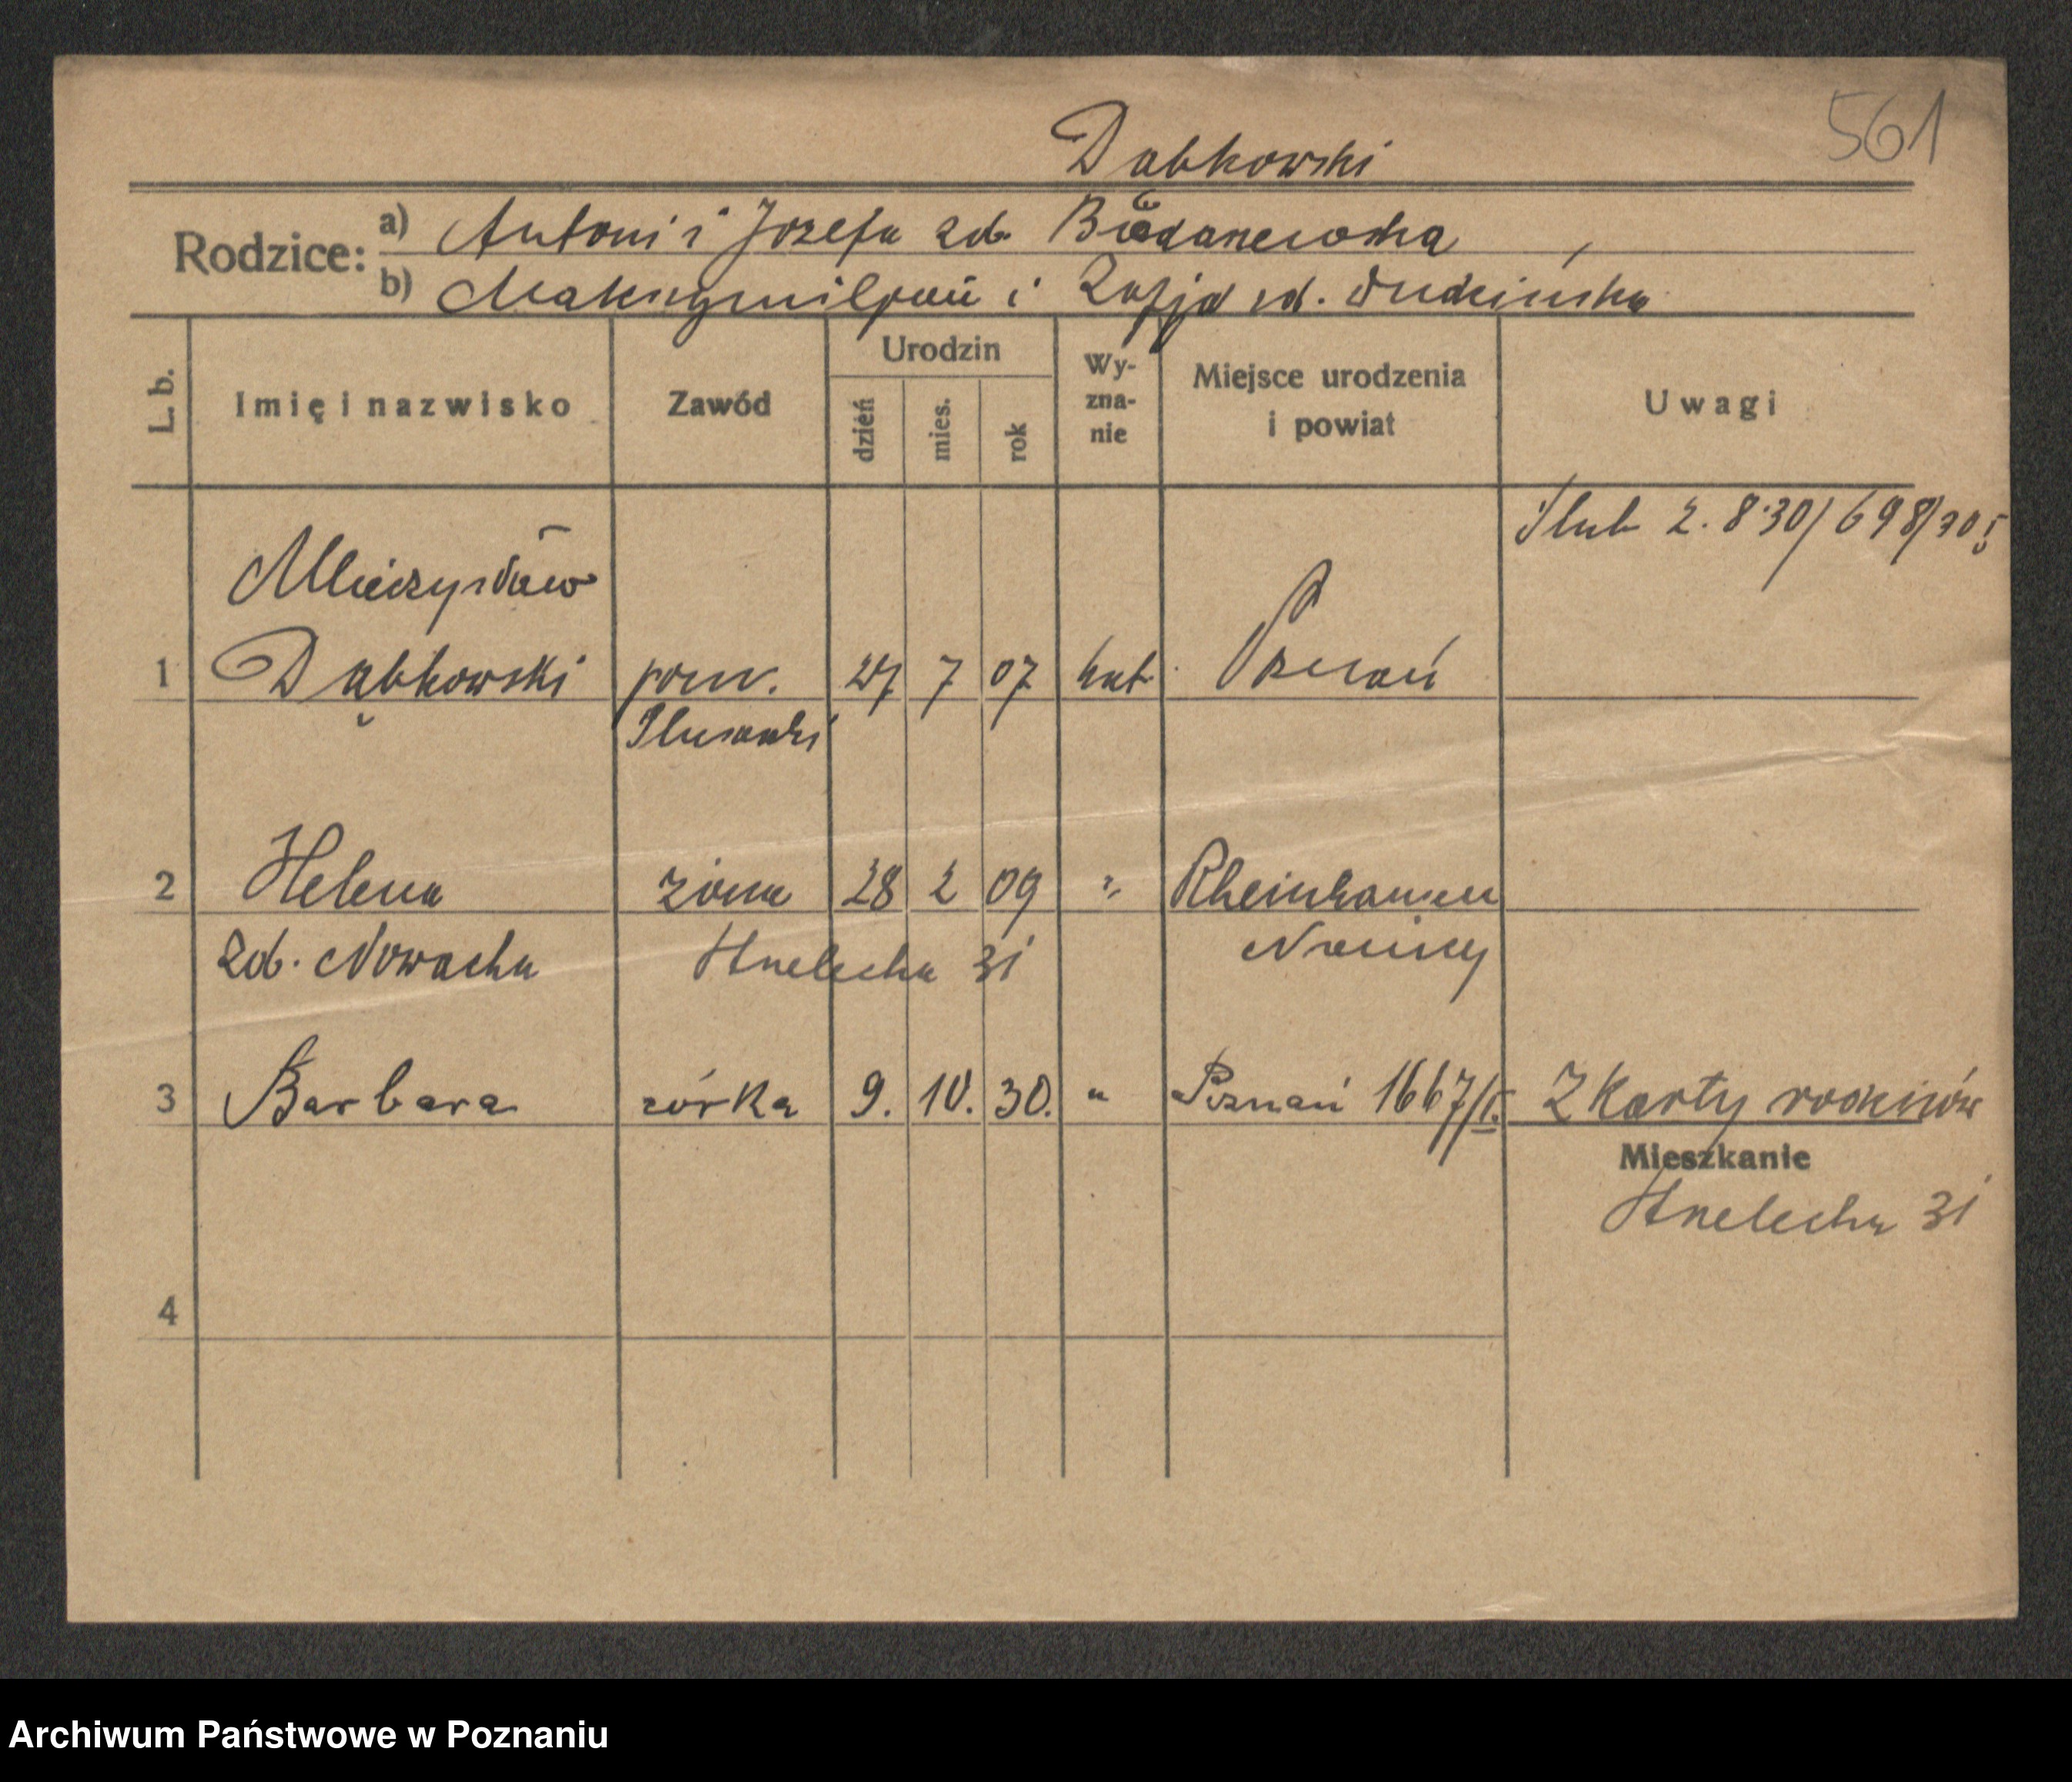 561
Dabkowski
Rodzice:
a) Antoni i Jozefa zd.
b) Maksymiljan i Zofja zd.
L. b.
Imię i nazwisko
Zawód
Urodzin
dzień
mies.
rok
Wy-
zna-
nie
Miejsce urodzenia
i powiat
Uwagi
Slub 2. 8 30/ 698/30
Mieczysław
1 Dąbkowski pom. 27 7 07 kat. Poznań
Slusarski
2 Helena żona 28 2 09 " Rheinhausen
zd. Nowacka Strzelecka 31 Niemcy
3 Barbara córka 9. 10. 30. " Poznań 1667/I. Z Karty rodziców
Mieszkanie
Strzelecka 31
4
Archiwum Państwowe w Poznaniu